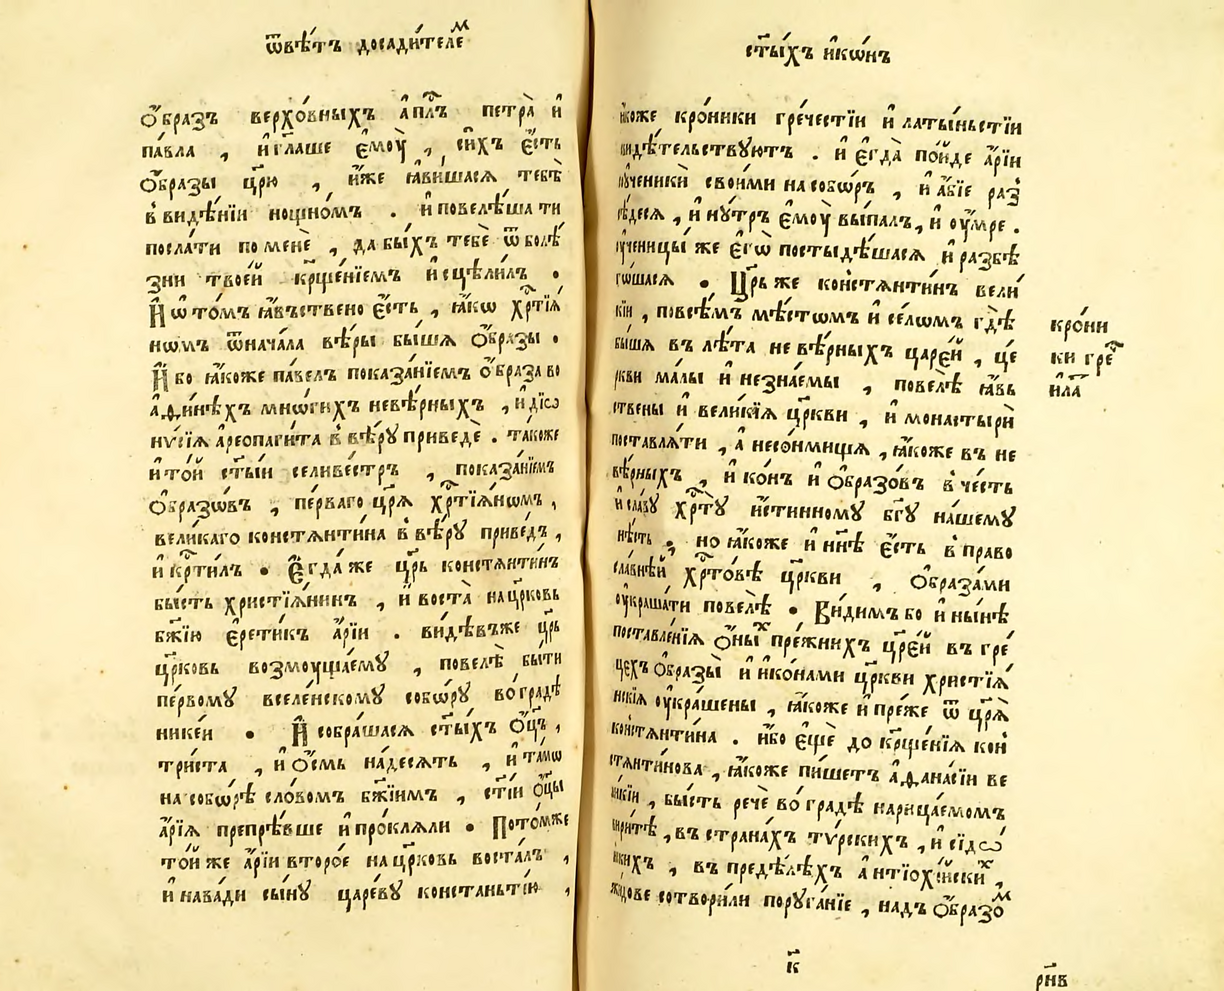 ѿвѣ́тъ досади́телеⷨ
ѻ҆́бразъ верхо́вныхъ а҆пⷭ҇лъ петра̀ и҆
па́вла , и҆ гл҃аше є҆мꙋ̀ , си́хъ є҆́сть
ѻ҆́бразы цр҃ю , и҆́же ꙗ҆ви́шасѧ тебѣ̀
в̾ видѣ́нїи нощно́мъ . и҆ повелѣ́ша ти
посла́ти по менѐ , да бы́хъ тебѐ ѿ болѣ́
зни твоеѝ крⷳ҇ще́нїемъ и҆сцѣли́лъ .
И҆ ѡ҆ то́мъ ꙗ҆́въствено є҆́сть , ꙗ҆́кѡ хрⷭ҇тїѧ́
нѡмъ ѿнача́ла вѣ́ры бы́шѧ ѻ҆́бразы .
И҆́бо ꙗ҆́коже па́велъ показа́нїемъ ѻ҆́браза во
а҆ѳи́нѣхъ мно́гихъ невѣ́рныхъ , и҆ дїѡ
нѵ́сїѧ а҆реопаги́та в̾ вѣ́рꙋ приведѐ . та́коже
и҆ то́й ст҃ы́и селиве́стръ , показа́нїемъ
ѻ҆́бразѡвъ , пе́рваго цр҃ѧ̀ хрⷭ҇тїѧ́нѡмъ ,
вели́каго констѧнти́на в̾ вѣ́рꙋ приве́дъ ,
и҆ крⷭ҇ти́лъ . Є҆гда́ же цр҃ь констѧнти́нъ
бы́сть христїѧ́нинъ , и҆ воста̀ на цр҃ковь
бж҃їю є҆рети́къ а҆́рїи . ви́дѣвъже цр҃ь
цр҃ковь возмꙋща́емꙋ , повелѣ̀ бы́ти
пе́рвомꙋ вселе́нскомꙋ собо́рꙋ во гра́дѣ
нике́и . И҆ собра́шасѧ ст҃ы́хъ ѻ҆ц҃ъ ,
три́ста , и҆ ѻ҆́смь на́десѧть , и҆ та́мѡ
на собо́рѣ сло́вомъ бж҃їимъ , ст҃і́и ѻ҆ц҃ы
а҆́рїѧ препрѣ́вше и҆ про́клѧли . Пото́мже
то́й же а҆́рїи второ́е на цр҃ковь воста́лъ ,
и҆ нава́ди сы́нꙋ царе́вꙋ констаньтїю ,
ст҃ы́хъ и҆кѡ́нъ
ꙗ҆́коже кро́ники гре́честїи и҆ латы́ньстїи
видѣ́тельствꙋютъ . и҆ є҆гда̀ по́йде а҆́рїи
ѹ҆ченикѝ свои́ми на собо́ръ , и҆ а҆́бїе раз̾
сѣ́десѧ , и҆ нꙋ́тръ є҆мꙋ̀ вы́палъ , и҆ ѹ҆́мре .
ѹ҆ченицы́ же є҆гѡ̀ постыдѣ́шасѧ и҆ разбѣ
го́шасѧ . Цр҃ь же констѧнти́нъ вели́
кїи , по всѣ́мъ мѣ́стѡмъ и҆ се́лѡмъ гдѣ̀
бы́шѧ въ лѣ́та невѣ́рныхъ царе́й , це́
ркви ма́лы и҆ незна́емы , повелѣ̀ ꙗ҆́вь
ствены и҆ вели́кїѧ цр҃кви , и҆ монастырѝ
поставлѧ́ти , а҆ не со́нмища , ꙗ҆́коже въ не
вѣ́рныхъ , и҆ ко́нъ и҆ ѻ҆́бразовъ в̾ че́сть
и҆ сла́вꙋ хрⷭ҇тꙋ̀ и҆́стинномꙋ бг҃ꙋ на́шемꙋ
нѣ́сть . но ꙗ҆́коже и҆ нн҃ѣ є҆́сть в̾ право
сла́внѣй хрⷭ҇то́вѣ цр҃кви , ѻ҆́бразами
ѹ҆краша́ти повелѣ̀ . Ви́димъ бо и҆ ны́нѣ
поставле́нїѧ ѻ҆́ныⷯ пре́жнихъ цр҃е́й въ гре́
цехъ ѻ҆́бразы и҆ и҆ко́нами цр҃кви христїѧ́
нскїѧ ѹ҆кра́шены , ꙗ҆́коже и҆ пре́же ѿ цр҃ѧ̀
констѧнти́на . и҆́бо є҆щѐ до крⷳ҇ще́нїѧ кон̾
стѧнти́нова , ꙗ҆́коже пи́шетъ а҆ѳана́сїи ве
ли́кїи , бы́сть речѐ во гра́дѣ нарица́емомъ
вири́тѣ , въ страна́хъ тѵ́рскихъ , и҆ сїдѡ́
нскихъ , въ предѣ́лѣхъ а҆нтїохі́йскиⷯ ,
жи́дове сотвори́ли порꙋга́нїе , надъ ѻ҆́бразоⷨ
кро́ни
ки греⷱ҇
и҆ла
к҃
рн҃в